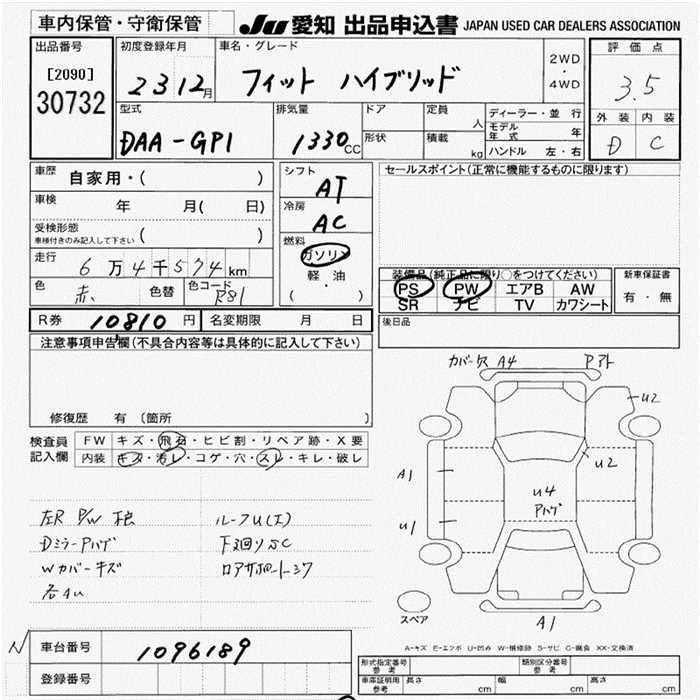 車内保管・守衛保管
JU 愛知 出品申込書 JAPAN USED CAR DEALERS ASSOCIATION
出品番号
[2090]
30732
初度登録年月
23 12月
車名・グレード
フィット ハイブリッド
2WD
・
4WD
評価点
3.5
外装 内装
D C
型式
DAA-GP1
排気量
1330cc
ドア
形状
定員
人
積載
kg
ディーラー・並 行
モデル年式 年
ハンドル 左・右
車歴
自家用・( )
車検
年 月( 日)
受検形態
車検付きのみ記入して下さい ( )
走行
6万4千574km
色
赤
色替
色コード
R81
シフト
AT
冷房
AC
燃料
ガソリン
軽・油
( )
セールスポイント(正常に機能するものに限ります)
装備品(純正品に限り○をつけてください)
PS PW エアB AW
SR ナビ TV カワシート
新車保証書
有・無
後日品
R券 10810円
名変期限 月 日
注意事項申告欄(不具合内容等は具体的に記入して下さい)
修復歴 有 (箇所 )
検査員
記入欄
FW キズ・飛石・ヒビ割・リペア跡・X要
内装 キズ・汚レ・コゲ・穴・スレ・キレ・破レ
左R P/W
DミラーAハゲ
Wカバーキズ
各4U
ルーフU(エ)
下廻りSC
カバーケス A4
Pアト
U2
A1
U2
U4
Pハゲ
U1
スペア
A1
A-キズ E-エクボ U-凹み W-補修跡 S-サビ C-腐食 XX-交換済
N
車台番号
1096189
登録番号
形式指定番号
参考
類別区分番号
参考
車庫証明用
参考
長さ cm
幅 cm
高さ cm